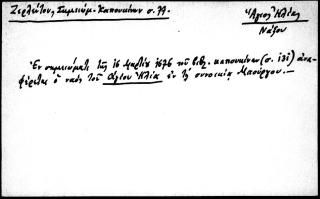 Ζερλέντου, Σημειώμ. Καπουκίνων σ. 77.
Ἅγιος Ἠλίας
Νάξου
Ἐν σημειώματι τῆς 16 Μαρτίου 1676 τοῦ βιβλ. καπουκίνων (σ. 131) ἀνα-
φέρεται ὁ ναὸς τοῦ Ἁγίου Ἠλία ἐν τῇ συνοικίᾳ Μπούργου. —